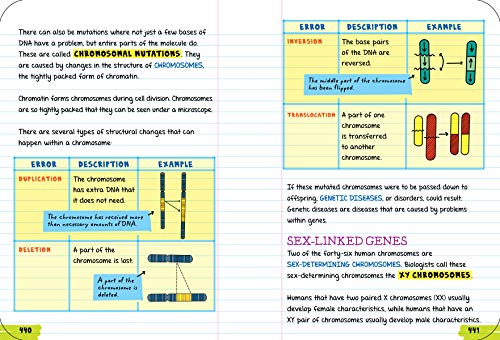 There can also be mutations where not just a few bases of
DNA have a problem, but entire parts of the molecule do.
These are called CHROMOSOMAL MUTATIONS. They
are caused by changes in the structure of CHROMOSOMES,
the tightly packed form of chromatin.
Chromatin forms chromosomes during cell division. Chromosomes
are so tightly packed that they can be seen under a microscope.
There are several types of structural changes that can
happen within a chromosome:
ERROR DESCRIPTION EXAMPLE
DUPLICATION
The chromosome
has extra DNA that
it does not need.
The chromosome has received more
than necessary amounts of DNA.
DELETION
A part of the
chromosome is lost.
A part of the
chromosome is
deleted.
440
ERROR DESCRIPTION EXAMPLE
INVERSION
The base pairs
of the DNA are
reversed.
The middle part of the chromosome
has been flipped.
TRANSLOCATION
A part of one
chromosome
is transferred
to another
chromosome.
If these mutated chromosomes were to be passed down to
offspring, GENETIC DISEASES, or disorders, could result.
Genetic diseases are diseases that are caused by problems
within genes.
SEX-LINKED GENES
Two of the forty-six human chromosomes are
SEX-DETERMINING CHROMOSOMES. Biologists call these
sex-determining chromosomes the XY CHROMOSOMES.
Humans that have two paired X chromosomes (XX) usually
develop female characteristics, while humans that have an
XY pair of chromosomes usually develop male characteristics.
441